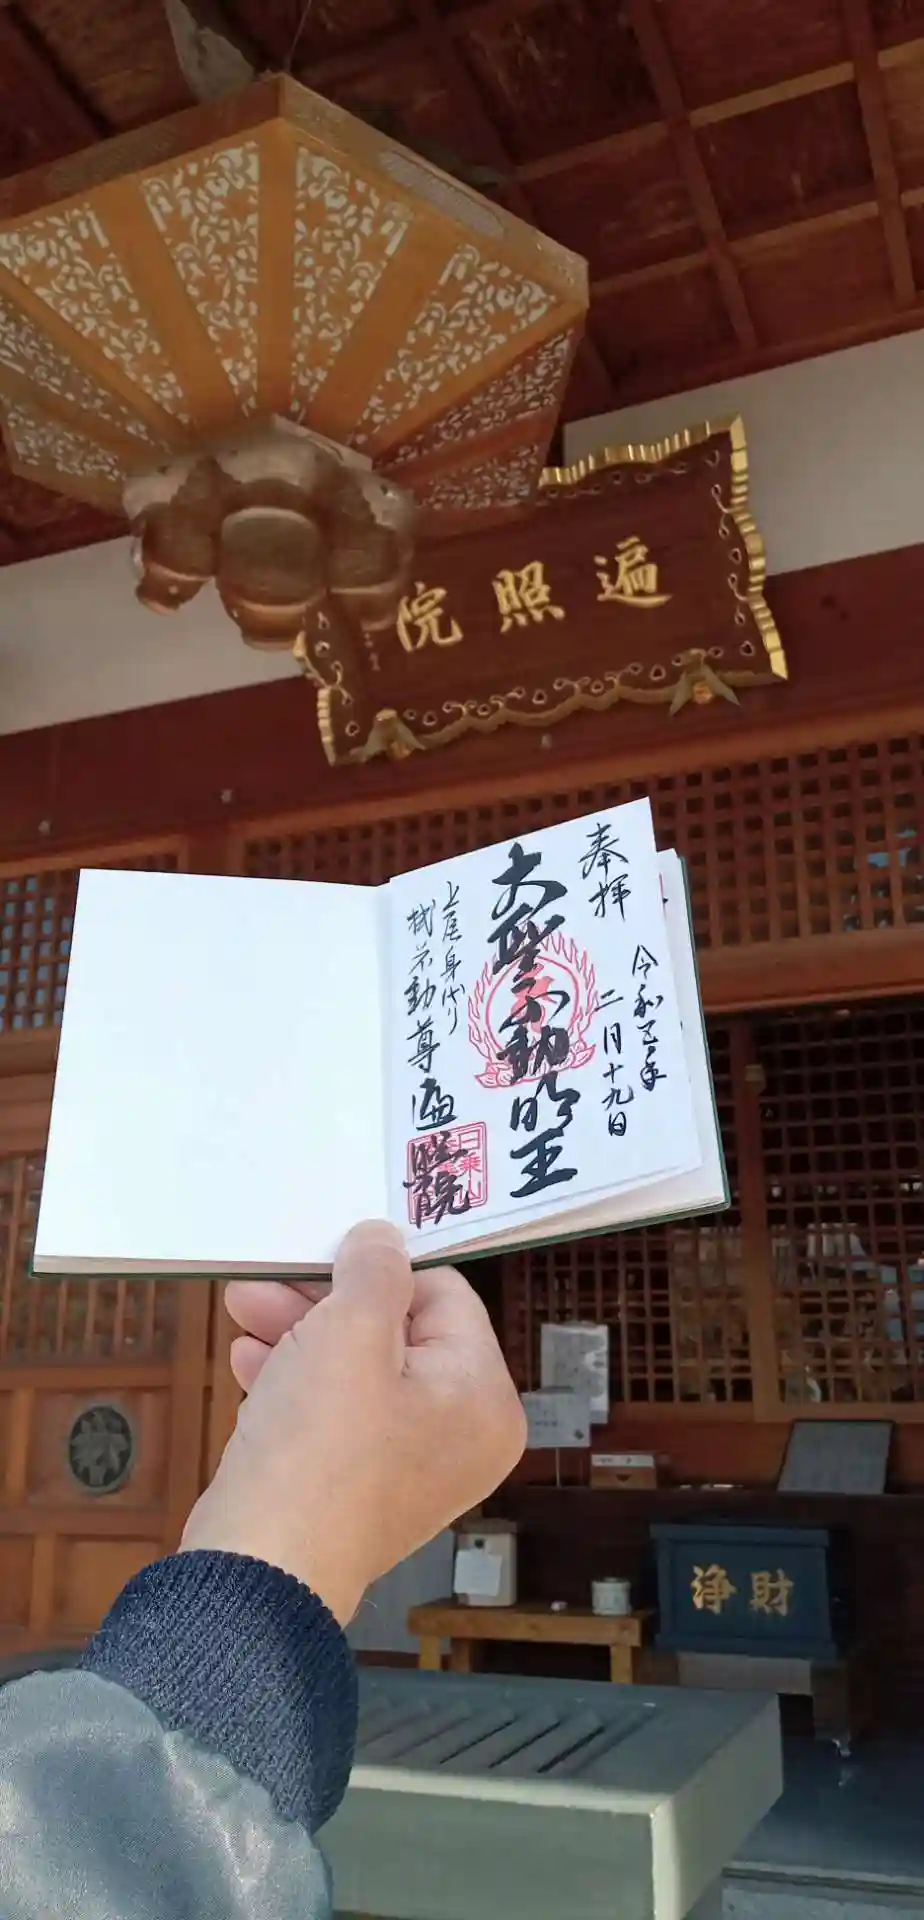 遍照院
奉拝
令和五年
二月十九日
大聖不動明王
上尾身代り
厄除不動尊
遍照院
日乗山
浄財